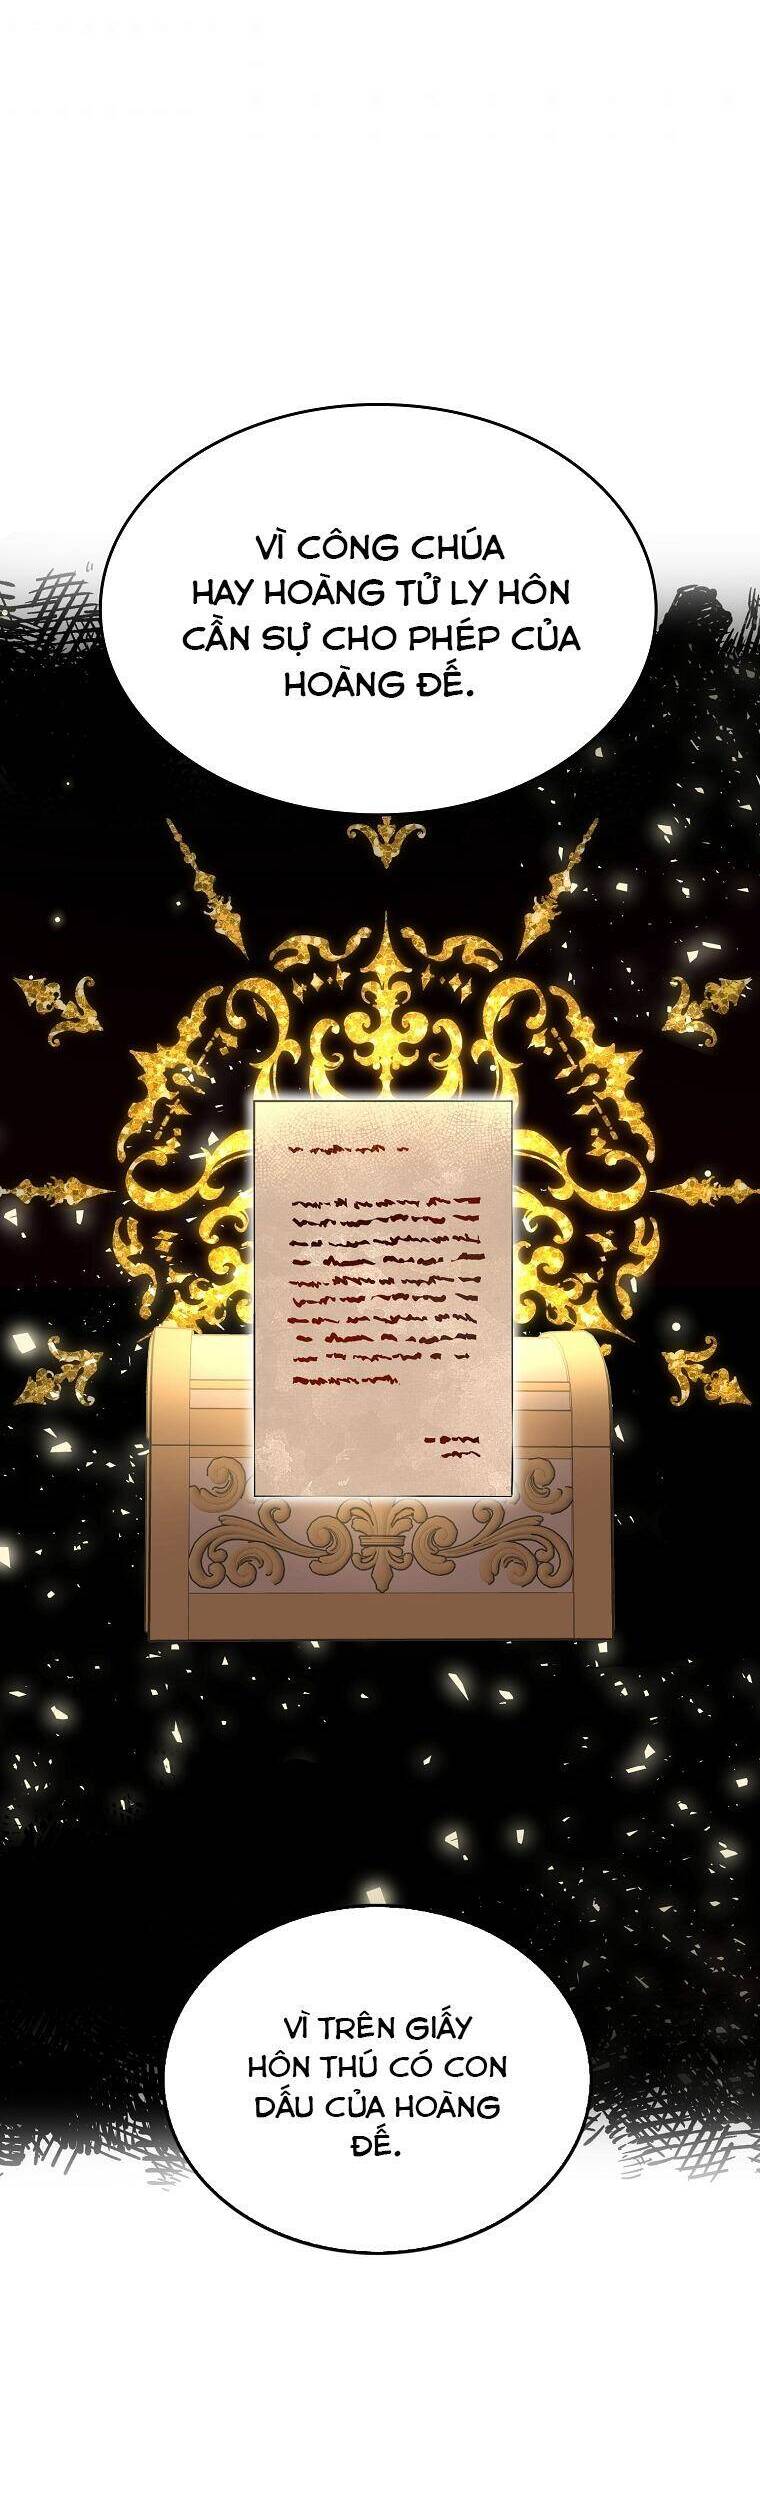 VÌ CÔNG CHÚA
HAY HOÀNG TỬ LY HÔN
CẦN SỰ CHO PHÉP CỦA
HOÀNG ĐẾ.
VÌ TRÊN GIẤY
HÔN THÚ CÓ CON
DẤU CỦA HOÀNG
ĐẾ.